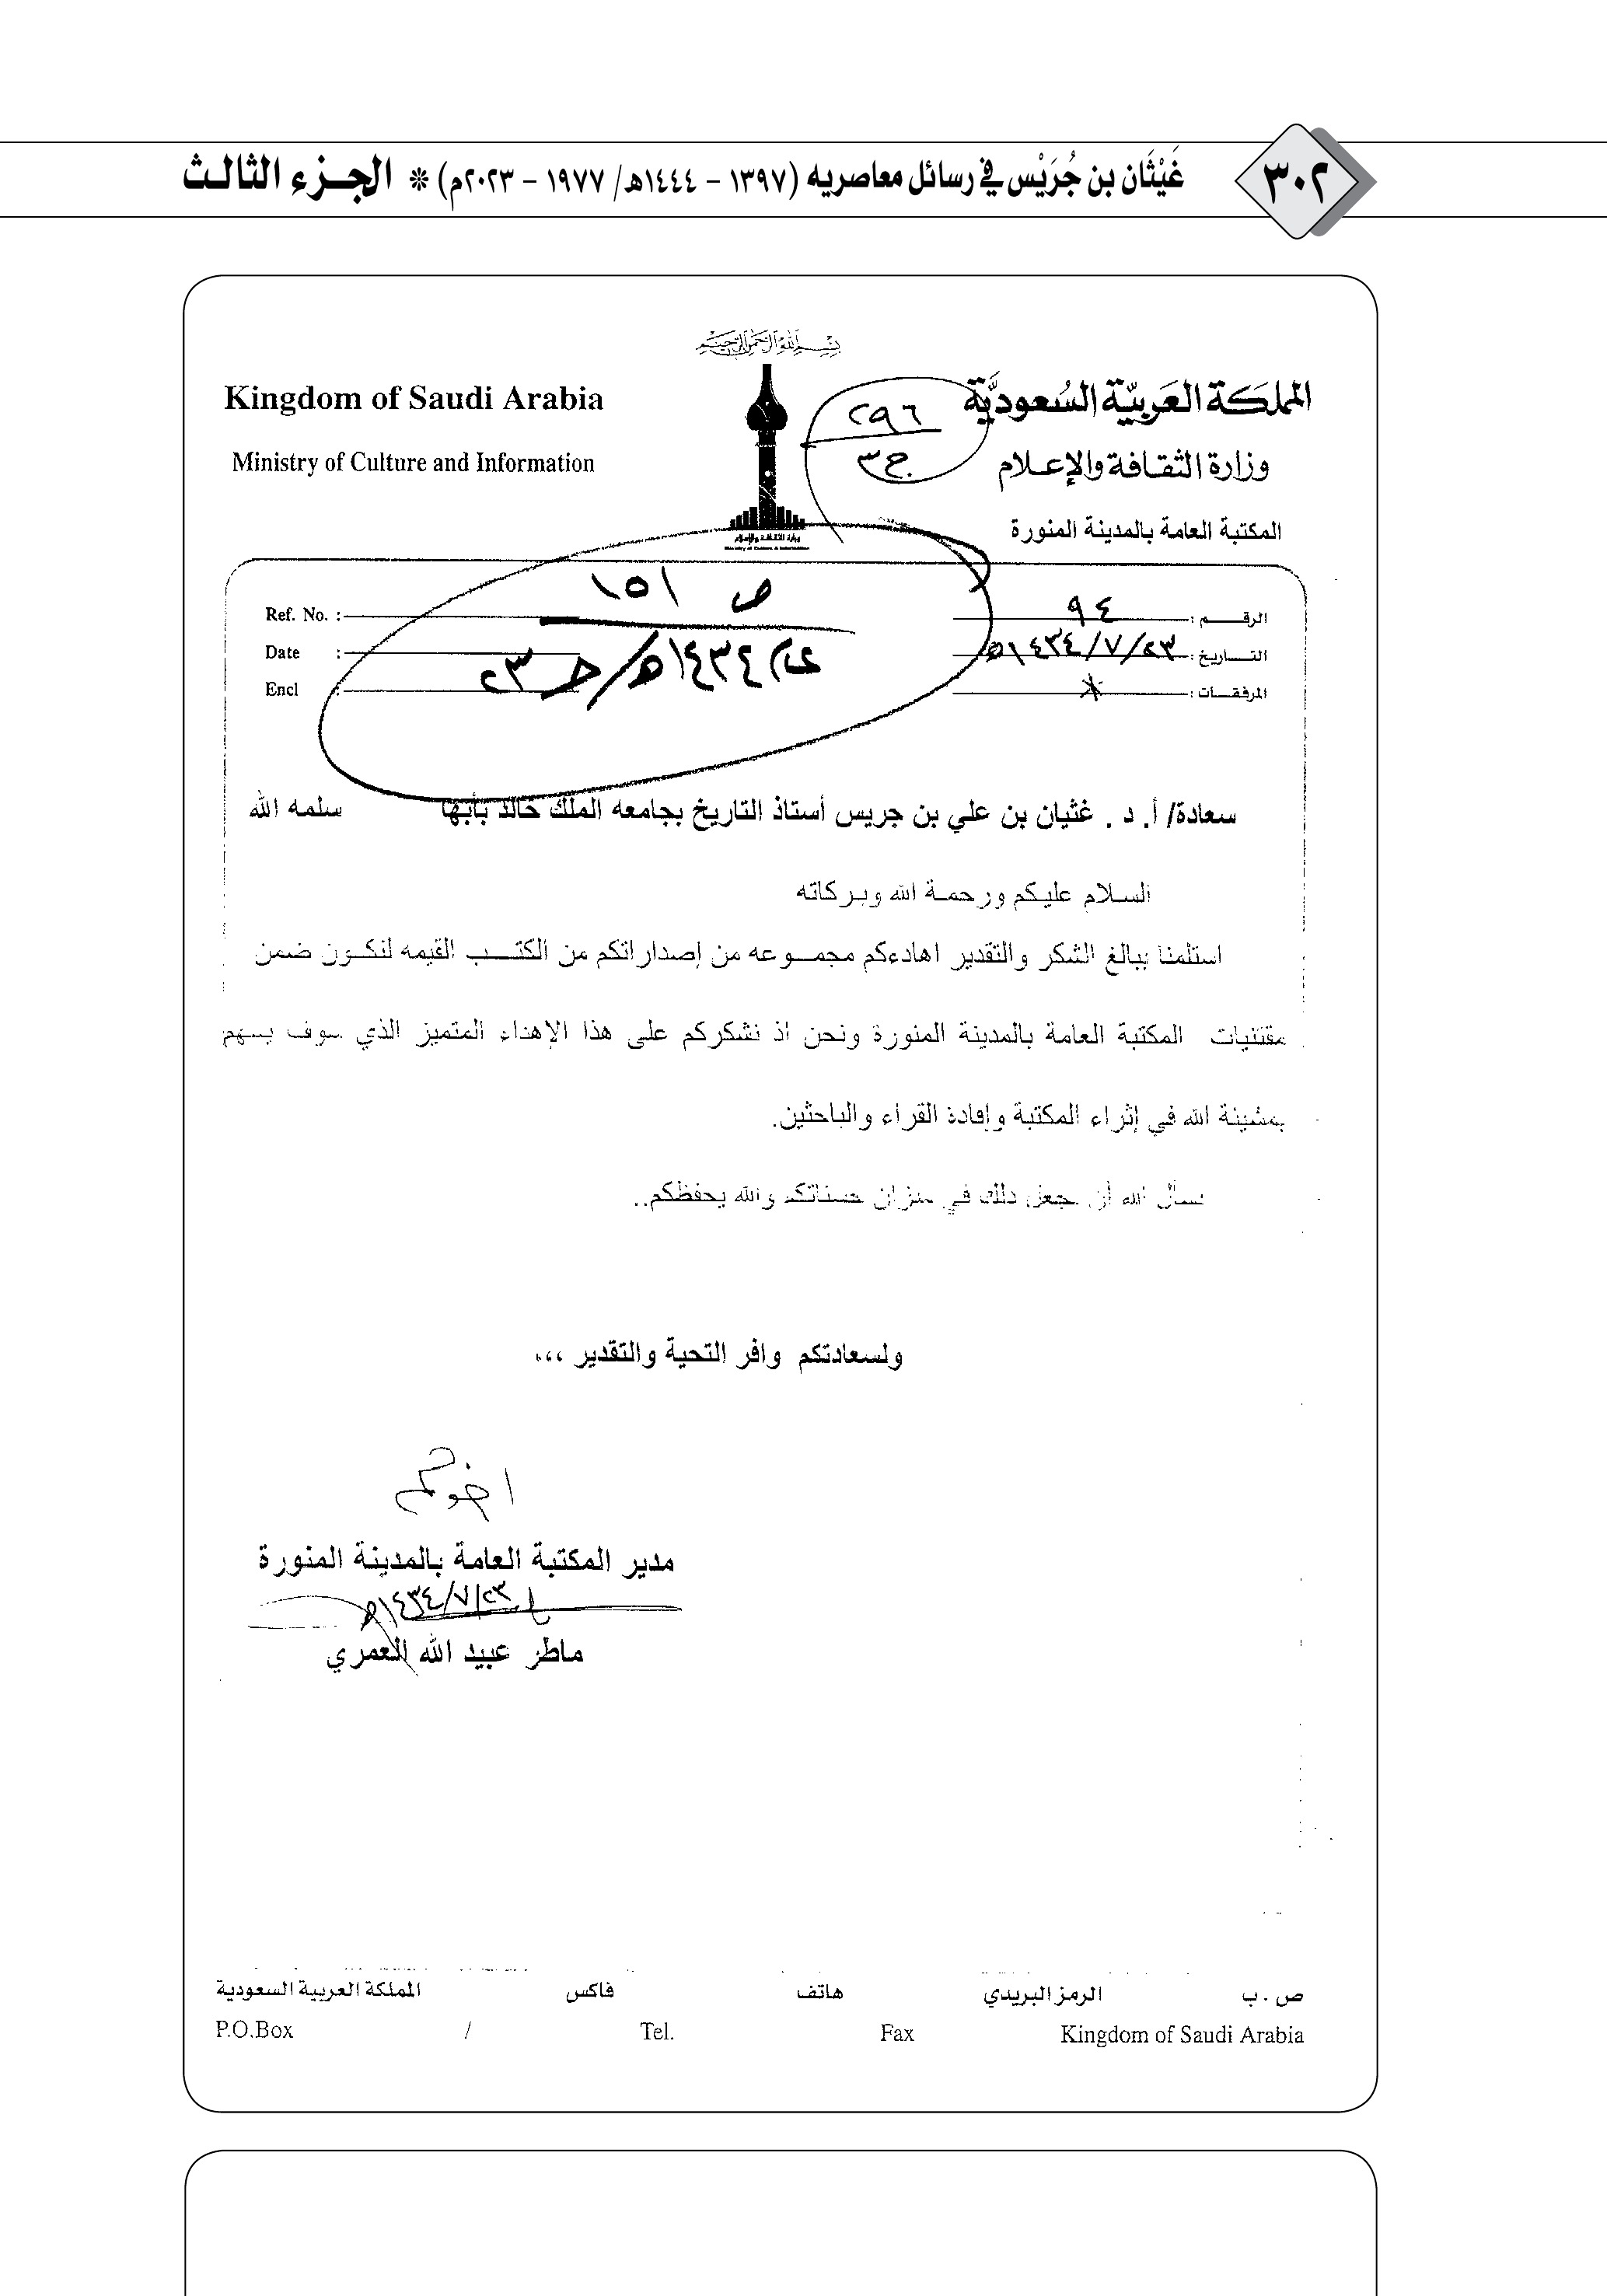 ٣٠٢
غَيْثَان بن جُرَيْس في رسائل معاصريه (١٣٩٧ - ١٤٤٤هـ/ ١٩٧٧ - ٢٠٢٣م) * الجزء الثالث
بسم الله الرحمن الرحيم
المملكة العربية السعودية
وزارة الثقافة والإعلام
المكتبة العامة بالمدينة المنورة
Kingdom of Saudi Arabia
Ministry of Culture and Information
وزارة الثقافة والإعلام
Ministry of Culture & Information
٢٩٦
ج٣
الرقم : ٩٤
التاريخ : ٢٣/٧/١٤٣٤هـ
المرفقات :
Ref. No. :
Date :
Encl :
ص ١٥١
١٤٣٤هـ/ جـ ٢٣
سعادة/ أ. د . غثيان بن علي بن جريس أستاذ التاريخ بجامعه الملك خالد بأبها سلمه الله
السلام عليكم ورحمة الله وبركاته
استلمنا ببالغ الشكر والتقدير اهادءكم مجموعه من إصداراتكم من الكتب القيمه لتكون ضمن
مقتنيات المكتبة العامة بالمدينة المنورة ونحن اذ نشكركم على هذا الإهداء المتميز الذي سوف يسهم
بمشيئة الله في إثراء المكتبة وإفادة القراء والباحثين.
نسأل الله أن يجعل ذلك في ميزان حسناتكم والله يحفظكم..
ولسعادتكم وافر التحية والتقدير ،،،
اخوكم
مدير المكتبة العامة بالمدينة المنورة
٢٣/٧/١٤٣٤هـ
ماطر عبيد الله العمري
ص . ب الرمز البريدي هاتف فاكس المملكة العربية السعودية
P.O.Box / Tel. Fax Kingdom of Saudi Arabia